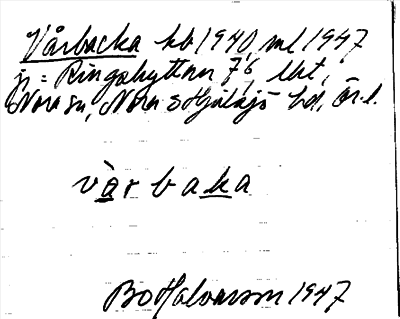 Vårbacka kb 1940, ml 1947
jr = Ringshyttan 7'6, lht,
Nora sn, Nora o Hjulsjö hd, Ör. l.
vàrbaka
Bo Halvarsson 1947